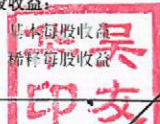 股收益：
基本每股收益
稀释每股收益
吴友
印